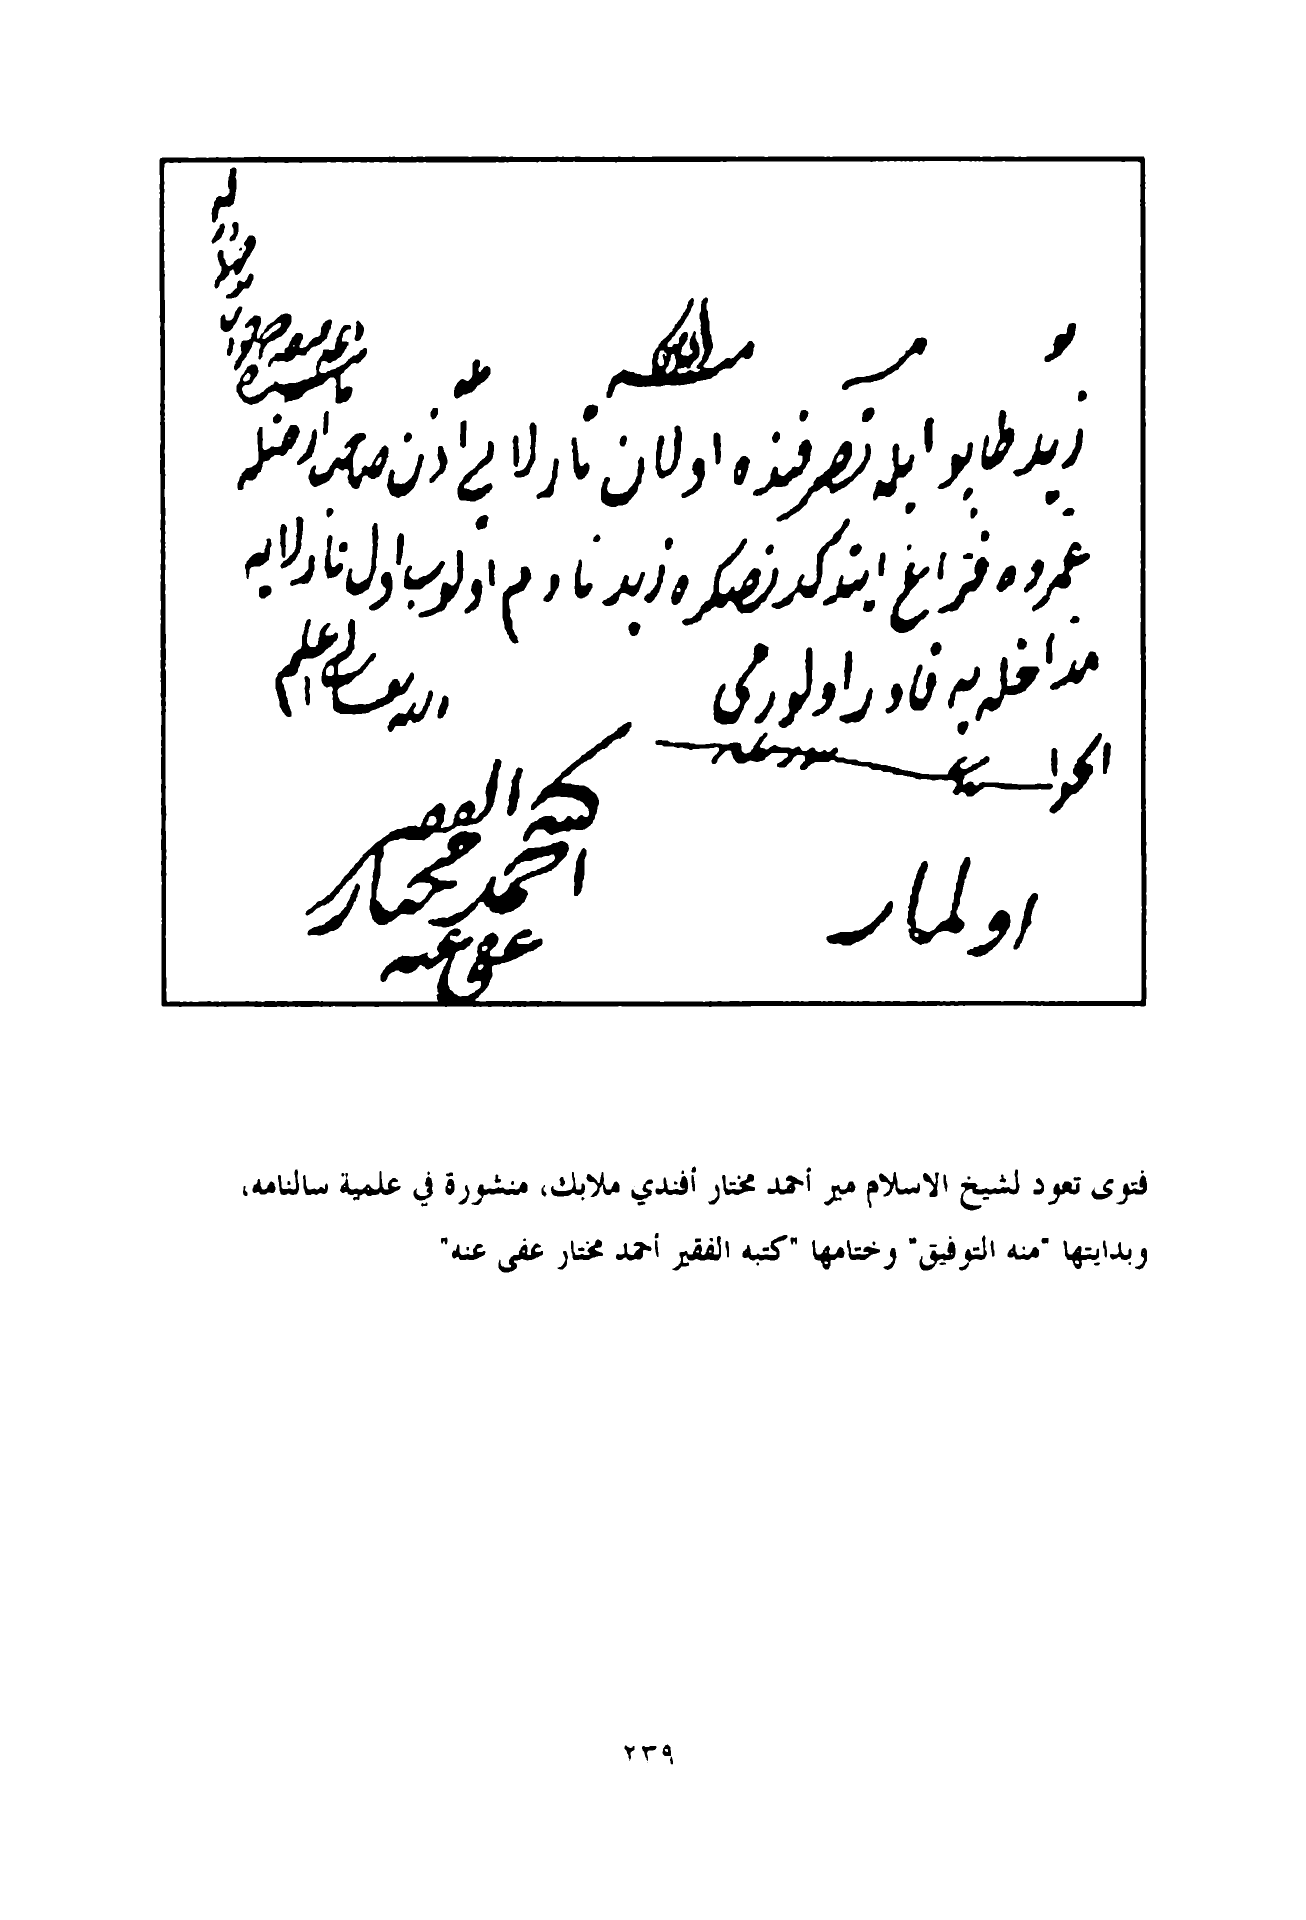 زيد طاپو ايله تصرفنده اولان تارلايى اذن صاحب ارضله
عمروه فراغ ايتدكدنصكره زيد نادم اولوب اول تارلايه
مداخله يه قادر اولورمى
الله تعالى اعلم
الجواب
اولماز
كتبه الفقير
احمد مختار
عفى عنه
فتوى تعود لشيخ الاسلام مير أحمد مختار أفندي ملابك، منشورة في علمية سالنامه،
وبدايتها "منه التوفيق" وختامها "كتبه الفقير أحمد مختار عفى عنه"
٢٣٩